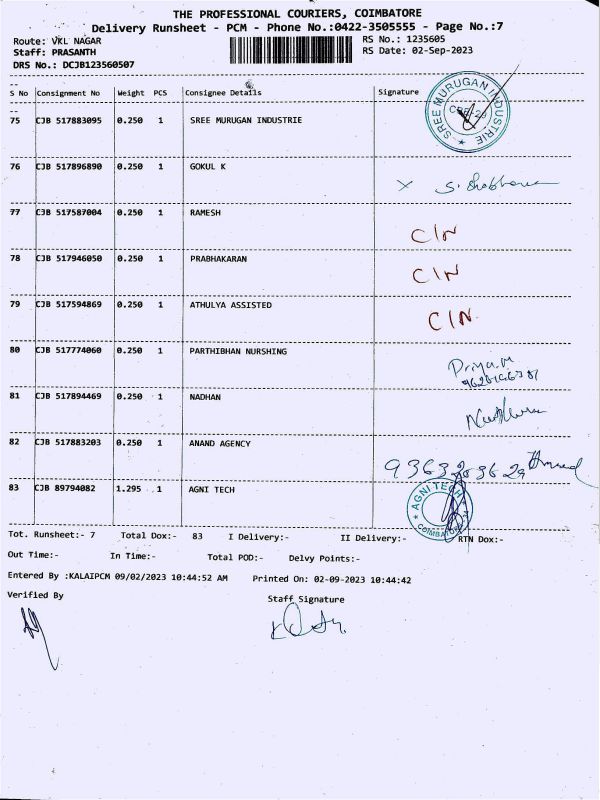 THE PROFESSIONAL COURIERS, COIMBATORE
Delivery Runsheet - PCM - Phone No.:0422-3505555 - Page No.:7
Route: VKL NAGAR RS No.: 1235605
Staff: PRASANTH RS Date: 02-Sep-2023
DRS No.: DCJB123560507
S No Consignment No Weight PCS Consignee Details Signature
75 CJB 517883095 0.250 1 SREE MURUGAN INDUSTRIE SREE MURUGAN INDUSTRIE
76 CJB 517896890 0.250 1 GOKUL K
77 CJB 517587004 0.250 1 RAMESH C/N
78 CJB 517946050 0.250 1 PRABHAKARAN C/N
79 CJB 517594869 0.250 1 ATHULYA ASSISTED C/N.
80 CJB 517774060 0.250 1 PARTHIBHAN NURSHING Priya.M
81 CJB 517894469 0.250 1 NADHAN
82 CJB 517883203 0.250 1 ANAND AGENCY
83 CJB 89794082 1.295 1 AGNI TECH AGNI TECH
Tot. Runsheet:- 7 Total Dox:- 83 I Delivery:- II Delivery:- RTN Dox:-
Out Time:- In Time:- Total POD:- Delvy Points:-
Entered By :KALAIPCM 09/02/2023 10:44:52 AM Printed On: 02-09-2023 10:44:42
Verified By Staff Signature